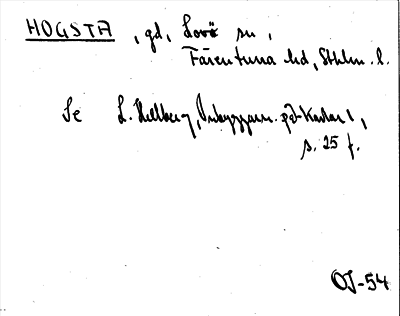 HOGSTA, gd, Lovö sn,
Färentuna hd, Sthlm. l.
Se L. Hellberg, på Kartan 1,
s. 25 f.
OJ-54